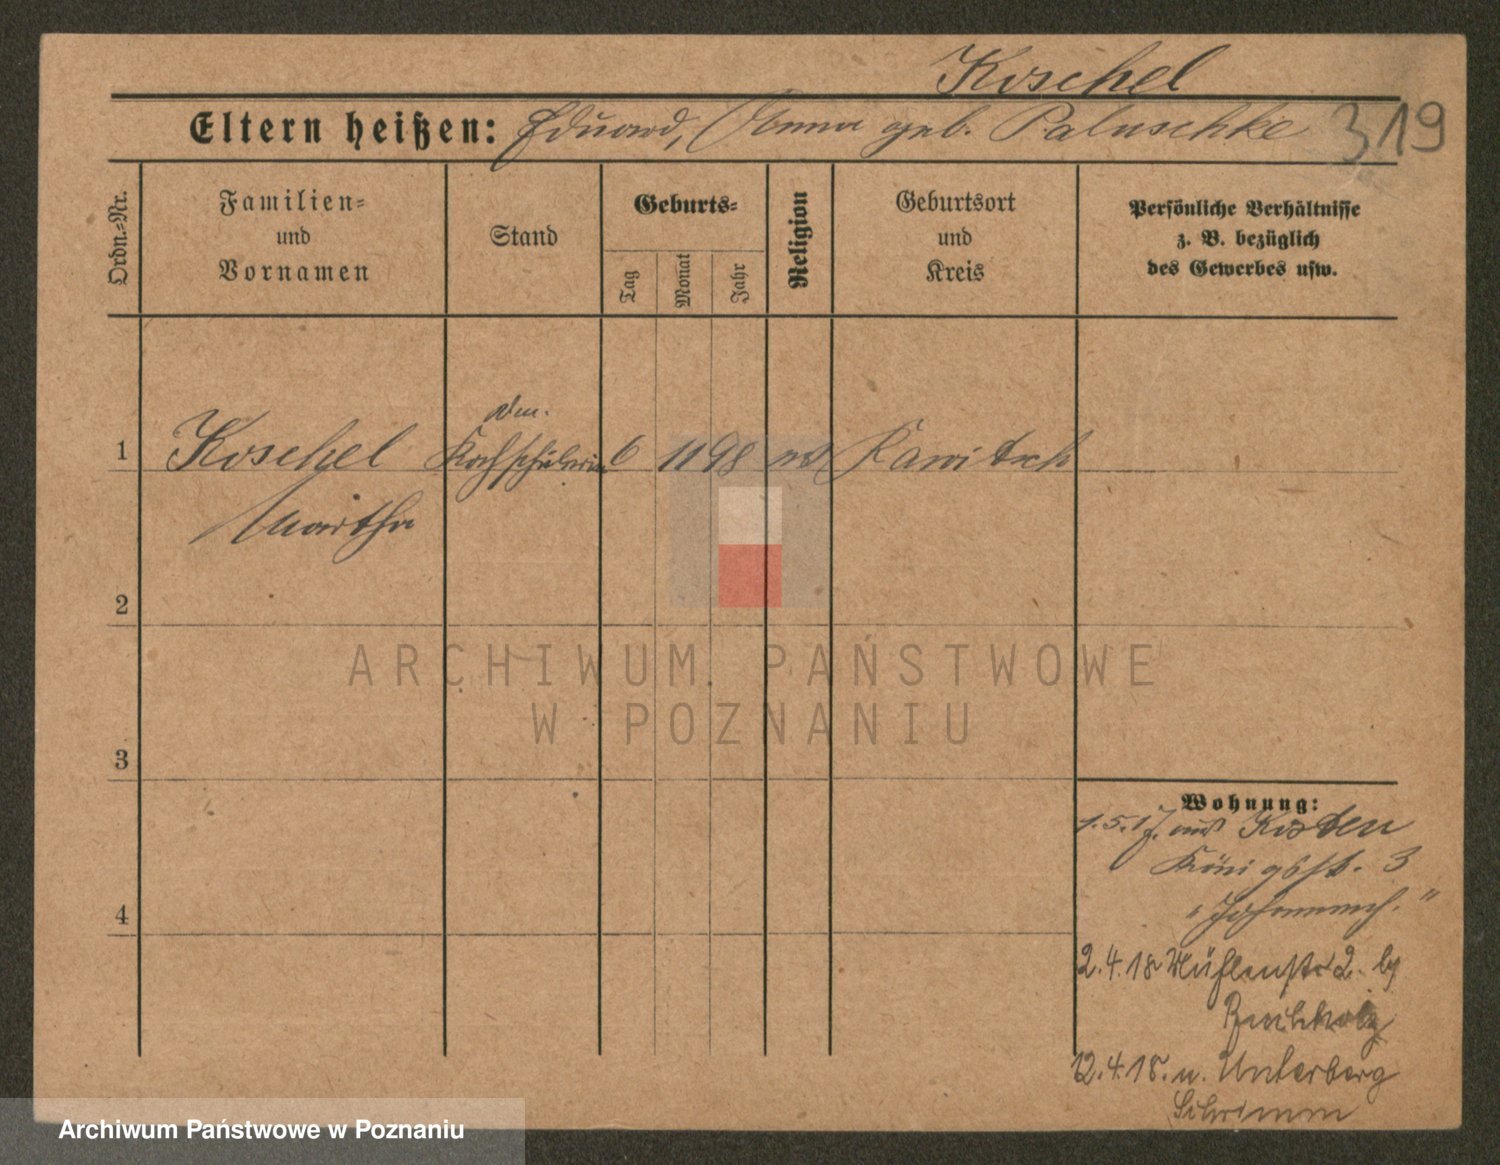 Koschel
Eltern heißen: Eduard, Anna geb. Paluschke 319
Ordn.-Nr.
Familien-
und
Vornamen
Stand
Geburts-
Tag
Monat
Jahr
Religion
Geburtsort
und
Kreis
Persönliche Verhältnisse
z. B. bezüglich
des Gewerbes usw.
1 Koschel Kochschülerin 6 11 98 Rawitsch
Martha
2
ARCHIWUM PAŃSTWOWE
W POZNANIU
3
Wohnung:
1.5.17. aus Kosten
Königstr. 3
"Johannch."
4
2.4.18 Mühlenstr 2. by
Buchholz
12.4.18. n. Unterberg
Schrimm
Archiwum Państwowe w Poznaniu